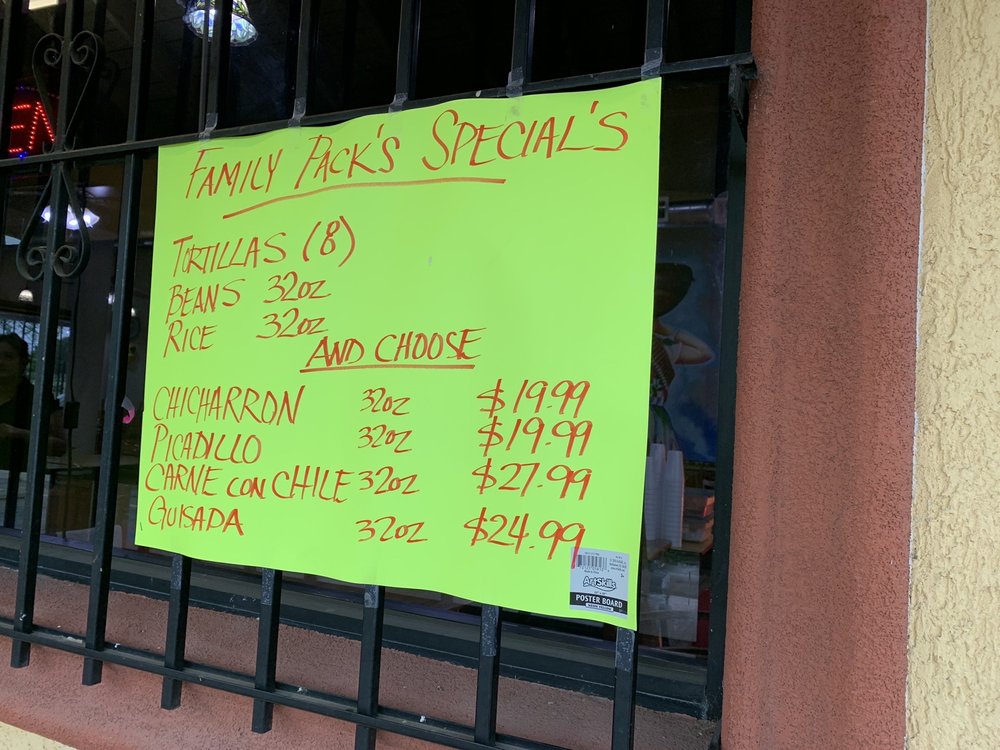 EN
FAMILY PACK'S SPECIAL'S
TORTILLAS (8)
BEANS 32oz
RICE 32oz
AND CHOOSE
CHICHARRON 32oz $19.99
PICADILLO 32oz $19.99
CARNE CON CHILE 32oz $27.99
GUISADA 32oz $24.99
ArtSkills
POSTER BOARD